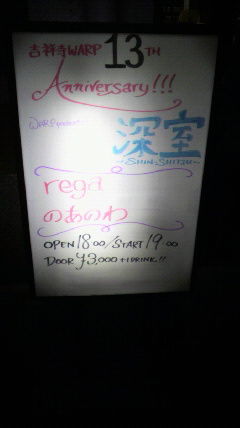 吉祥寺WARP 13TH
Anniversary!!!
WARP presents
深室
~SHIN-SHITSU~
rega
のあのわ
OPEN 18:00/START 19:00
DOOR ¥3,000 +1DRINK!!